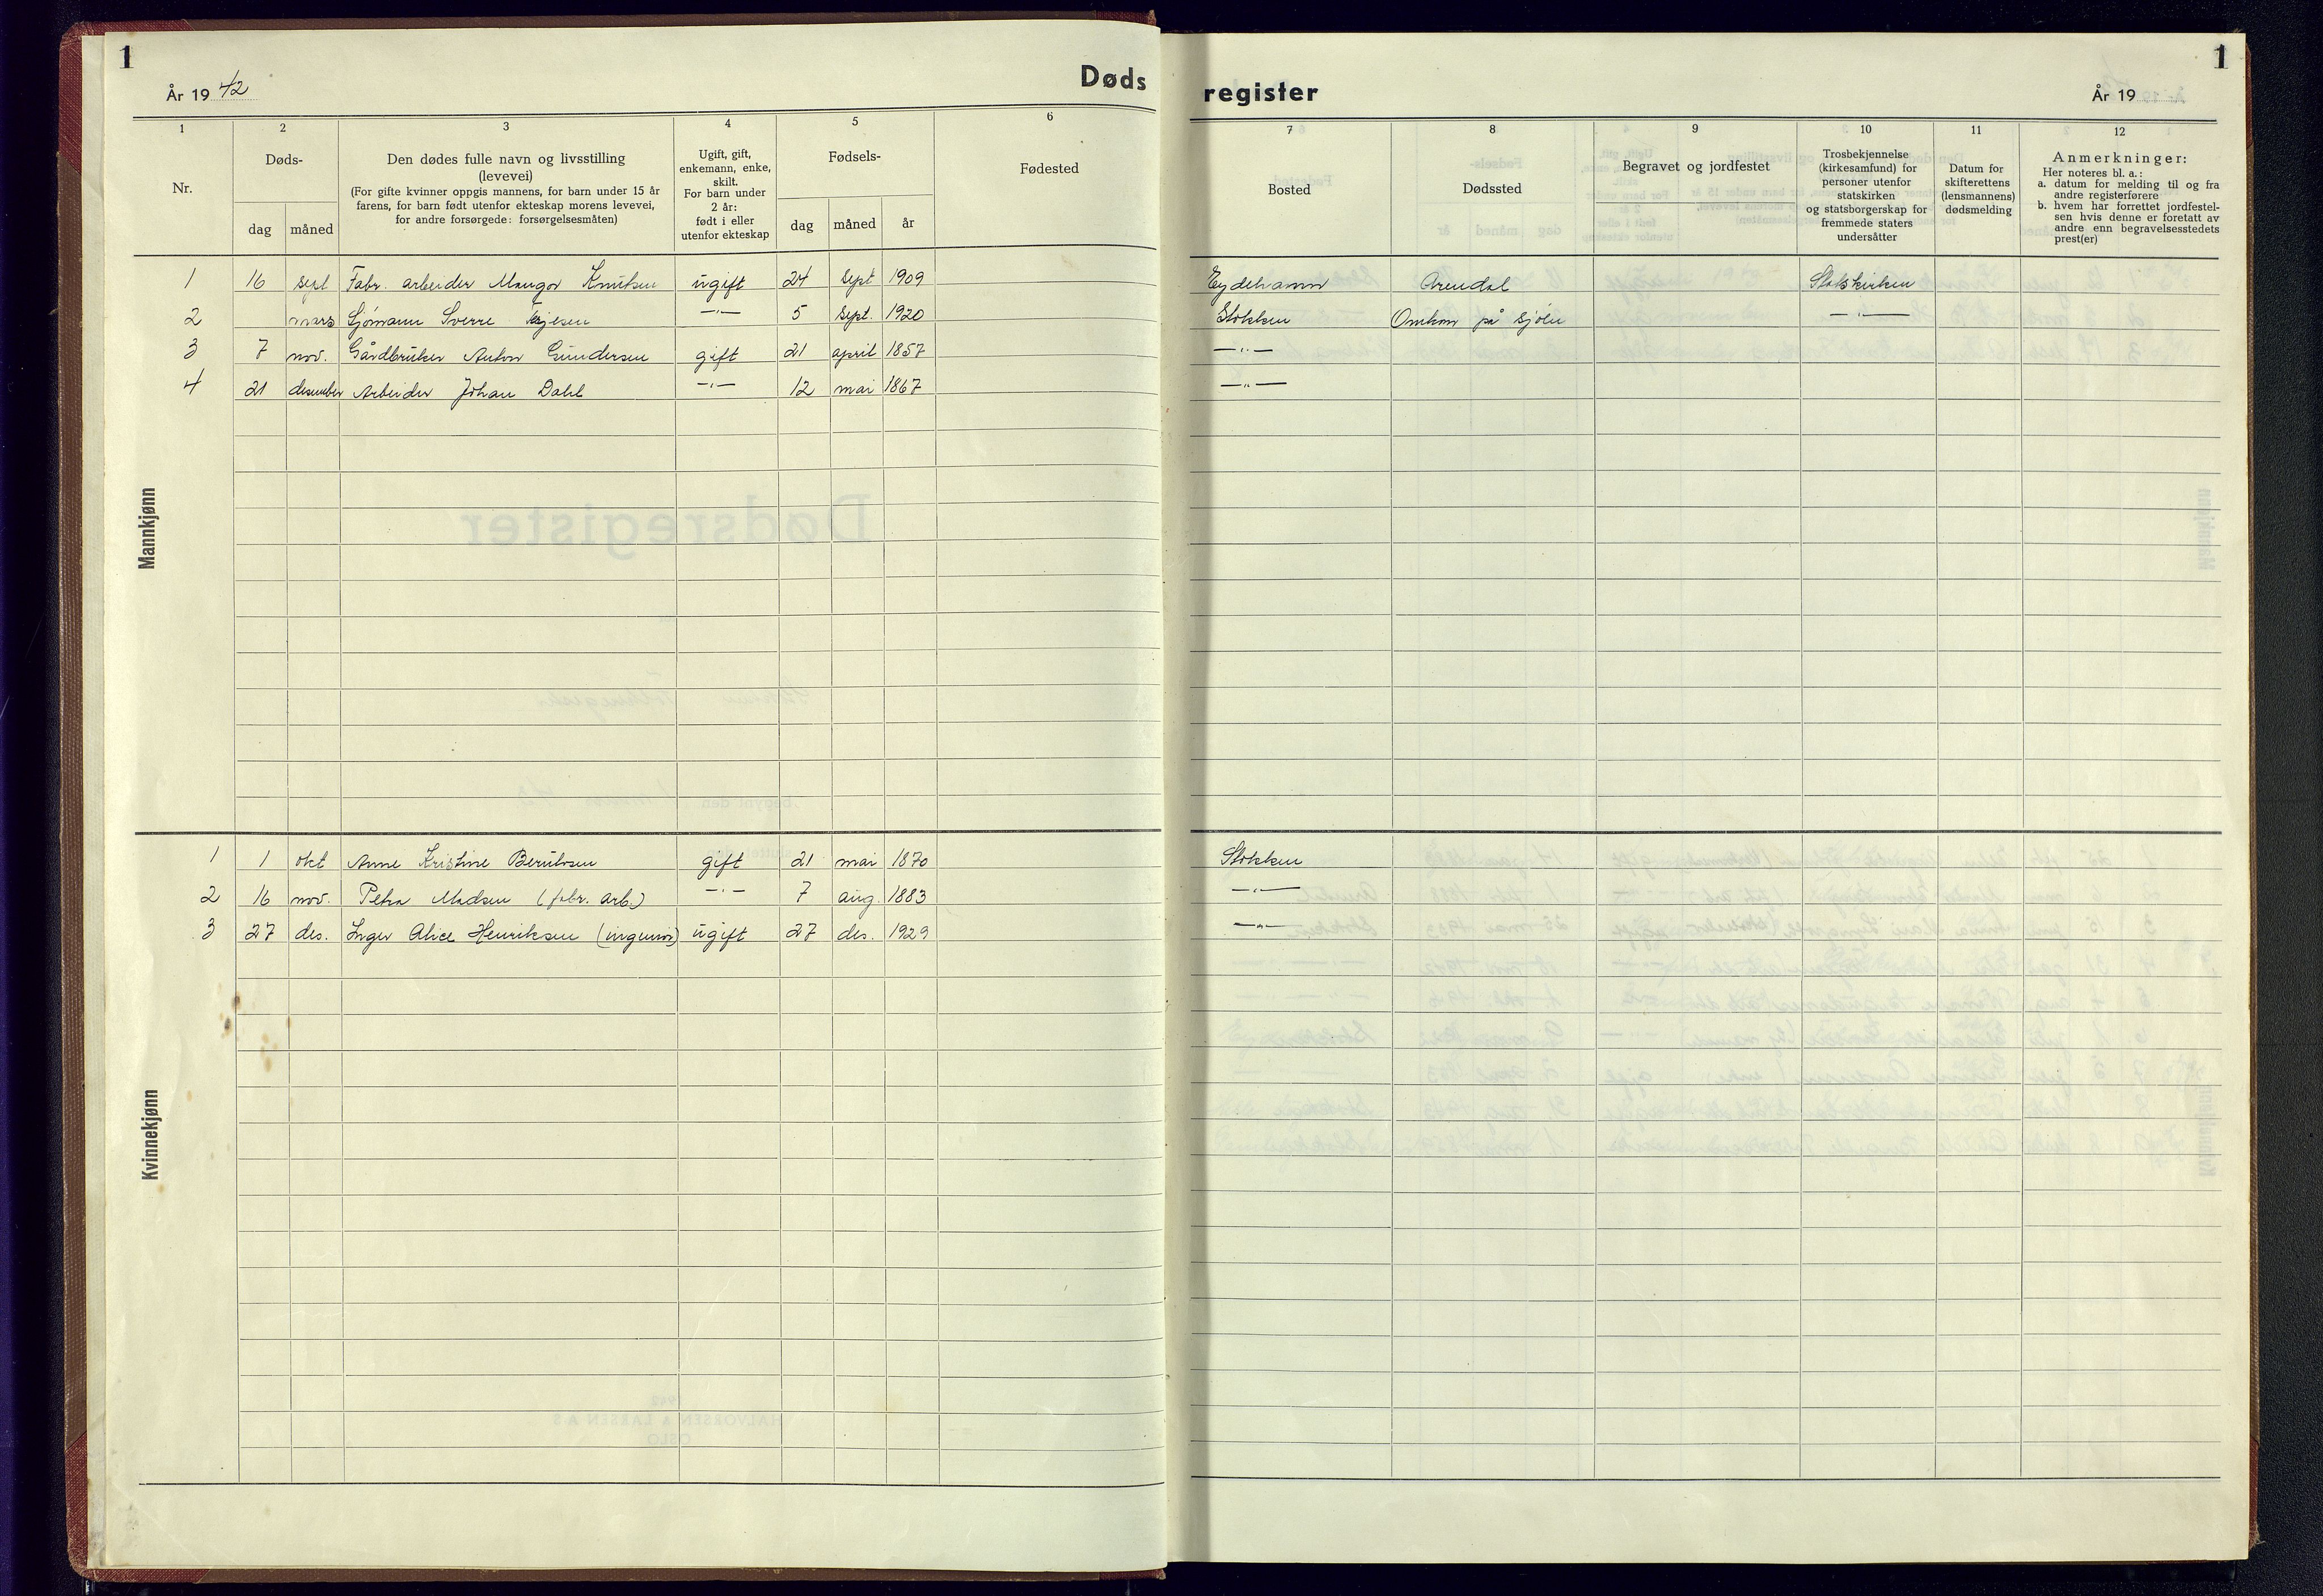 1
År 19 42
Døds
register
År 19
1
1 2 3 4 5 6 7 8 9 10 11 12
Nr.
Døds-
dag måned
Den dødes fulle navn og livsstilling
(levevei)
(For gifte kvinner oppgis mannens, for barn under 15 år
farens, for barn født utenfor ekteskap morens levevei,
for andre forsørgede: forsørgelsesmåten)
Ugift, gift,
enkemann, enke,
skilt.
For barn under
2 år:
født i eller
utenfor ekteskap
Fødsels-
dag måned år
Fødested
Bosted
Dødssted
Begravet og jordfestet
Trosbekjennelse
(kirkesamfund) for
personer utenfor
statskirken
og statsborgerskap for
fremmede staters
undersåtter
Datum for
skifterettens
(lensmannens)
dødsmelding
Anmerkninger:
Her noteres bl. a.:
a. datum for melding til og fra
andre registerførere
b. hvem har forrettet jordfestel-
sen hvis denne er foretatt av
andre enn begravelsesstedets
prest(er)
Mannkjønn
1 16 sept Fabr. arbeider Mangor Knutsen ugift 24 sept 1909 Eydehamn Arendal Statskirken
2 mars Sjømann Sverre —"— 5 sept. 1920 Stokken Omkom på sjøen —"—
3 7 nov. Gårdbruker Anton Gundersen gift 21 april 1857 —"—
4 21 desember Arbeider Johan Dahl —"— 12 mai 1867 —"—
Kvinnekjønn
1 1 okt Anne Kristine Berntsen gift 21 mai 1870 Stokken
2 16 nov. Petra Madsen (fabr. arb.) —"— 7 aug. 1883 —"—
3 27 des. Inger Alice Henriksen (ingeniør) ugift 27 des. 1929 —"—